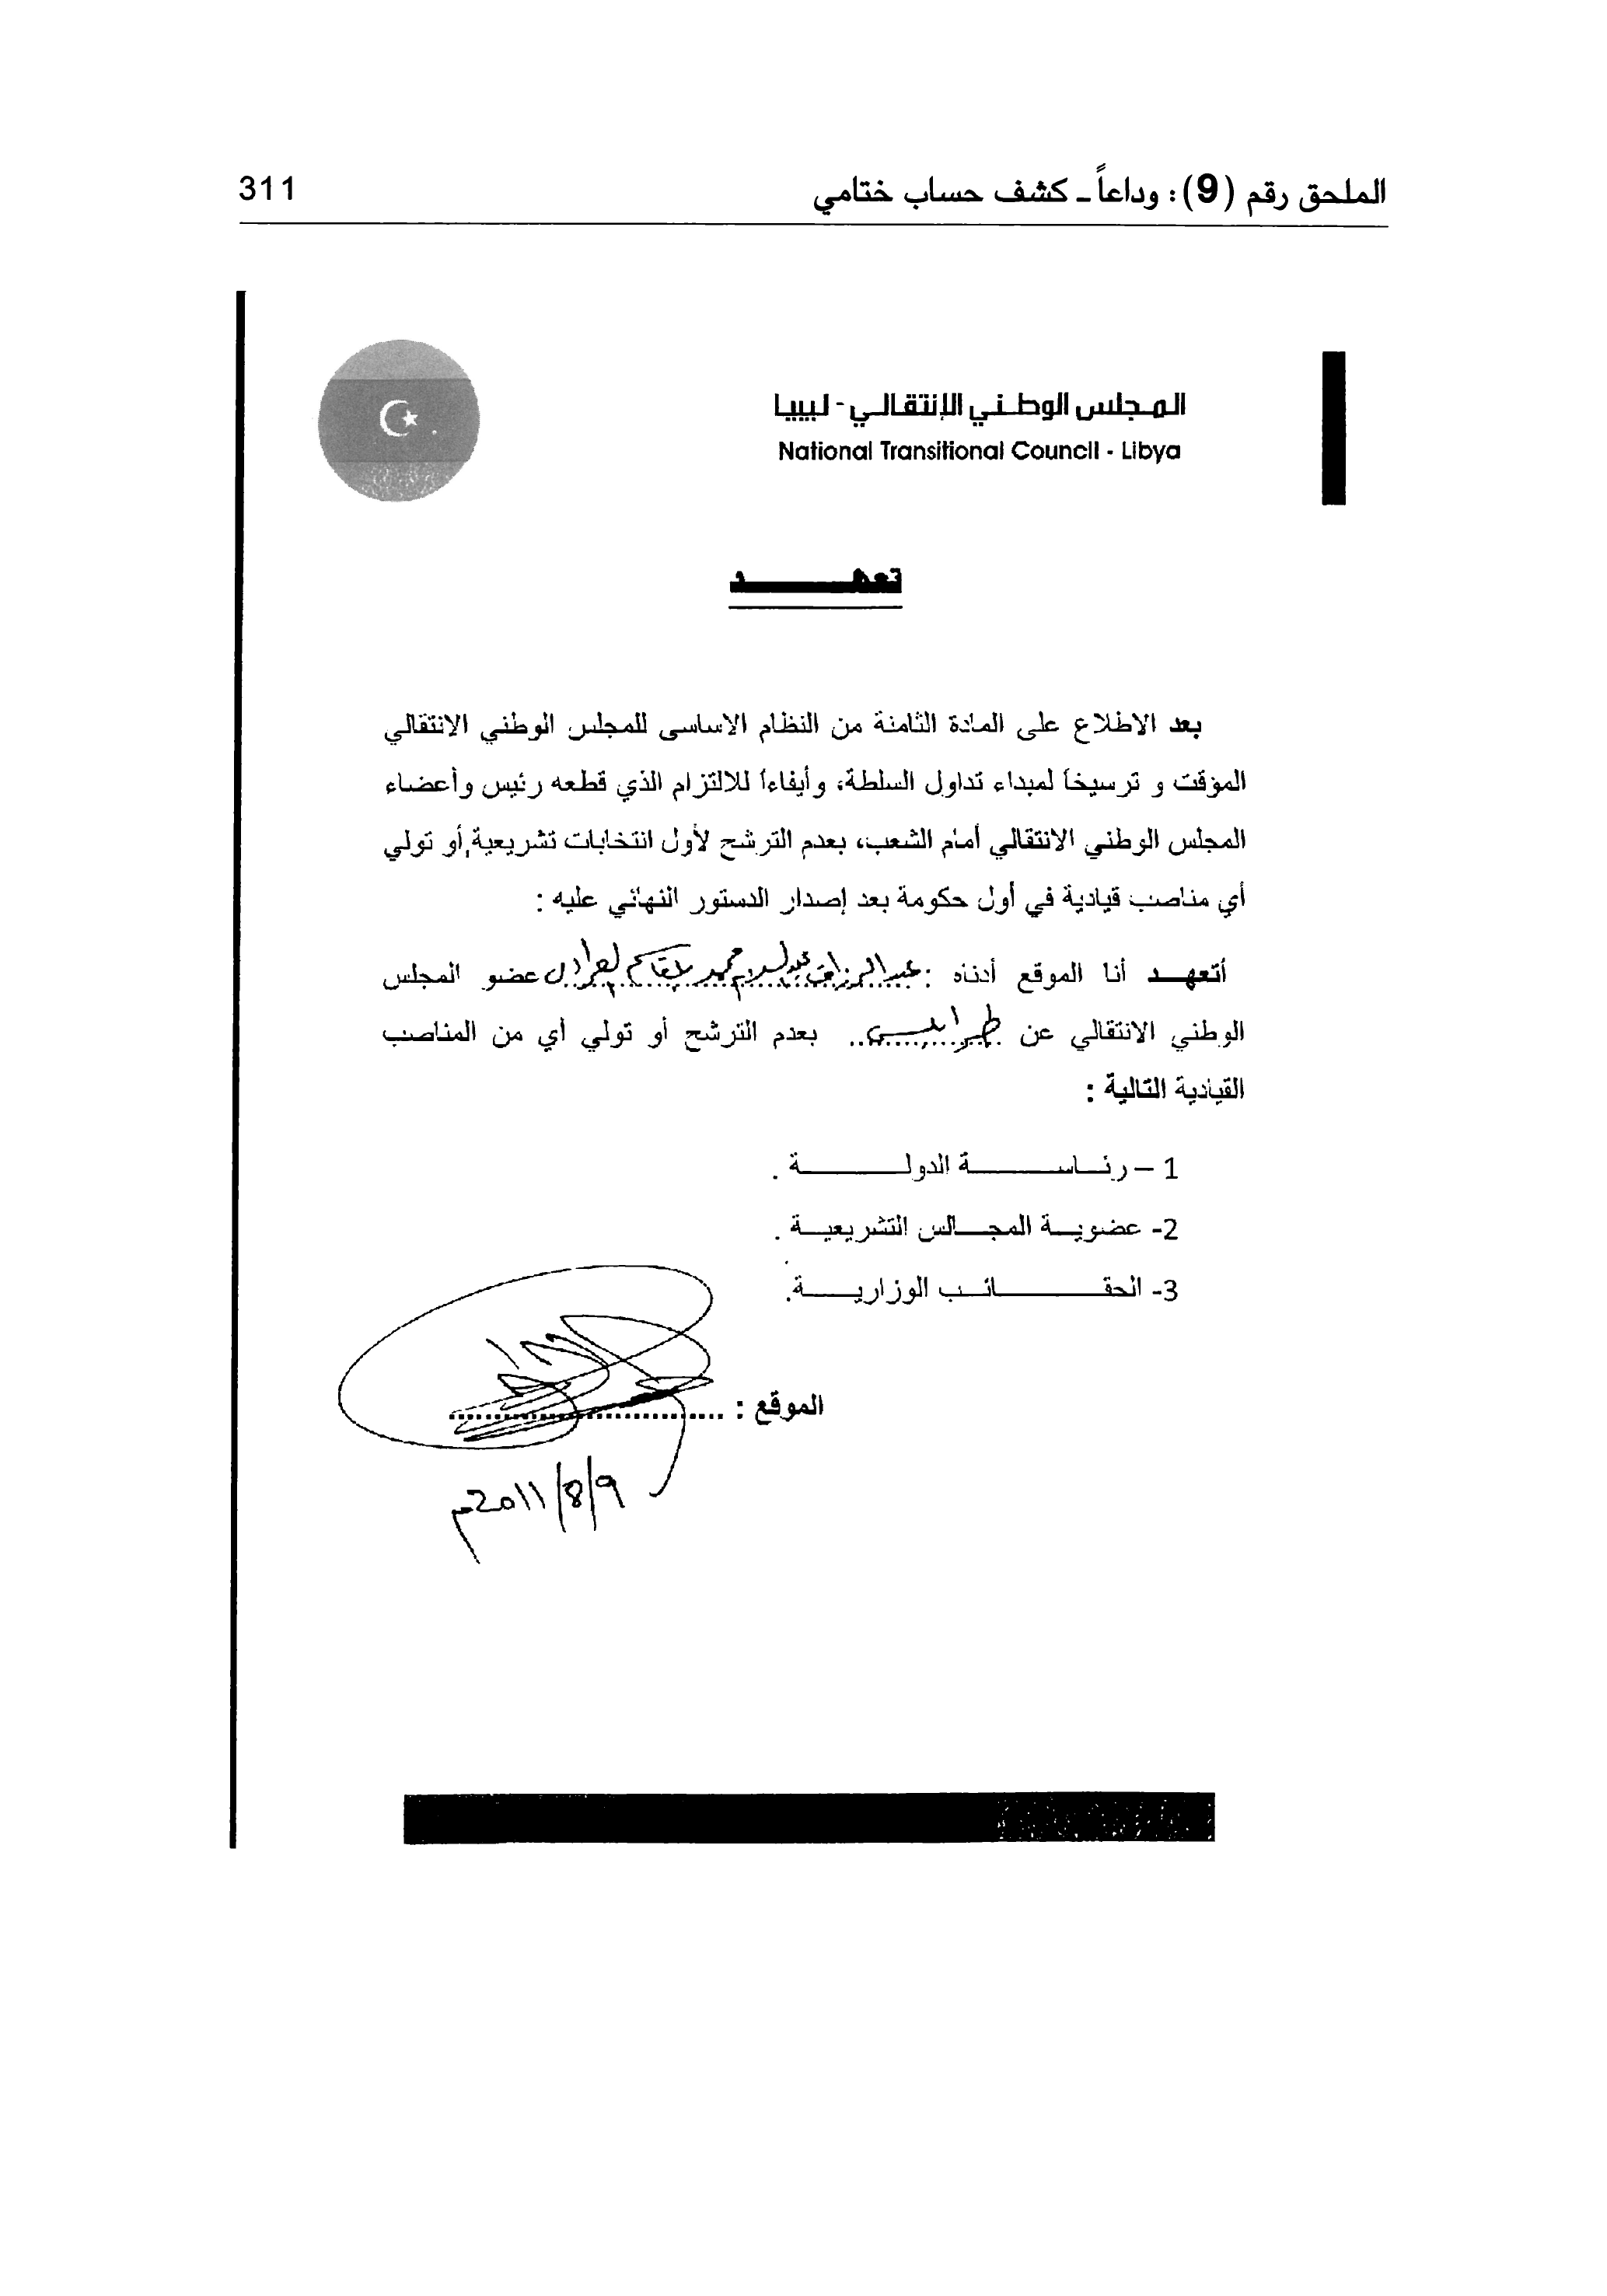 الملحق رقم (9): وداعاً ـ كشف حساب ختامي
311
المجلس الوطني الإنتقالي - ليبيا
National Transitional Council - Libya
تعهـــــــد
بعد الاطلاع على المادة الثامنة من النظام الاساسى للمجلس الوطني الانتقالي
المؤقت و ترسيخاً لمبداء تداول السلطة، وأيفاءاً للالتزام الذي قطعه رئيس وأعضاء
المجلس الوطني الانتقالي أمام الشعب، بعدم الترشح لأول انتخابات تشريعية, أو تولي
أي مناصب قيادية في أول حكومة بعد إصدار الدستور النهائي عليه :
أتعهـــد أنا الموقع أدناه : عبدالرزاق عبدالسلام محمد بلقاسم العرادي عضو المجلس
الوطني الانتقالي عن طرابلس بعدم الترشح أو تولي أي من المناصب
القيادية التالية :
1 – رئـاســـــــة الدولـــــــة .
2- عضويـــة المجـــالس التشريعيـــة .
3- الحقـــــــائـب الوزاريـــــة.
الموقع : ..............................
2011/8/9م